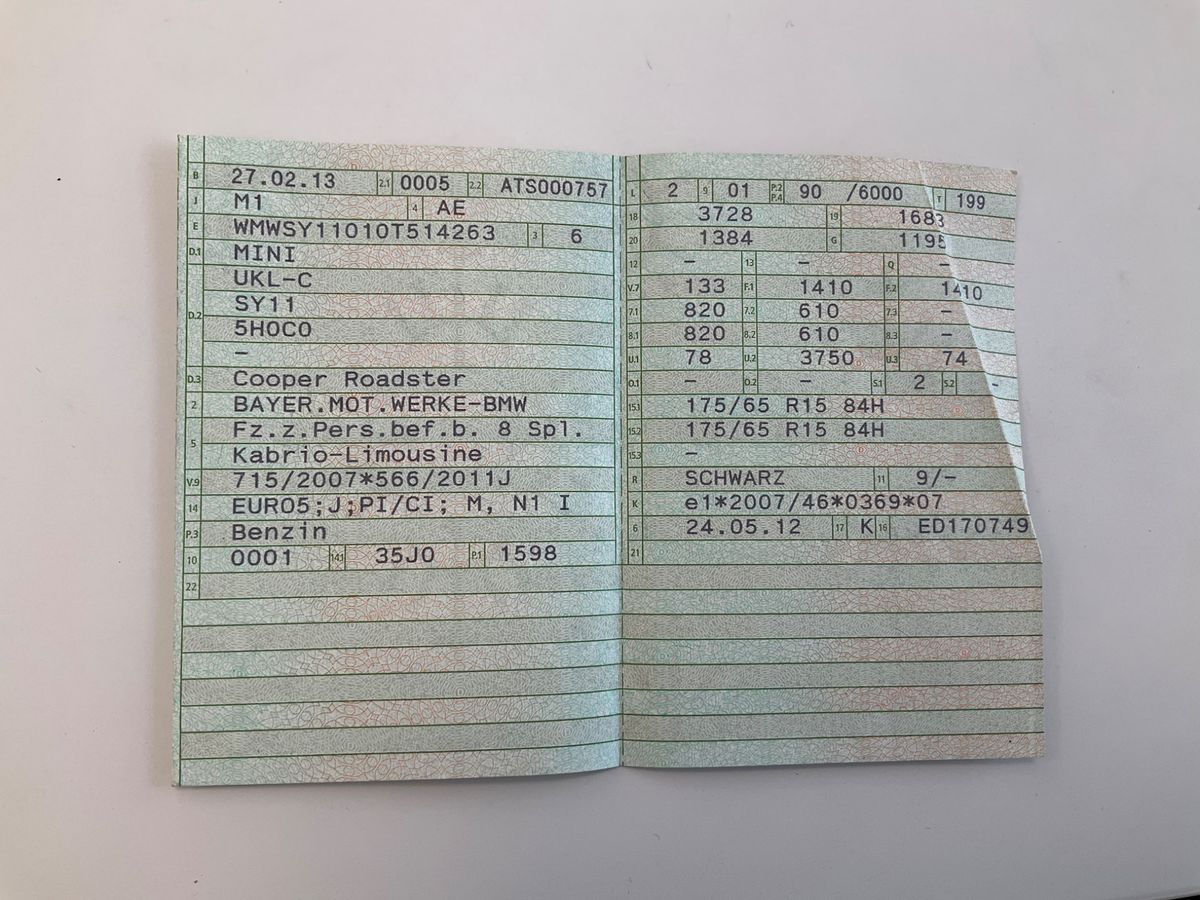 B 27.02.13 2.1 0005 2.2 ATS000757
J M1 4 AE
E WMWSY11010T514263 3 6
D.1 MINI
UKL-C
D.2 SY11
5H0C0
–
D.3 Cooper Roadster
2 BAYER.MOT.WERKE-BMW
Fz.z.Pers.bef.b. 8 Spl.
5 Kabrio-Limousine
V.9 715/2007*566/2011J
14 EURO5;J;PI/CI; M, N1 I
P.3 Benzin
10 0001 14.1 35J0 P.1 1598
22
L 2 9 01 P.2 P.4 90 /6000 T 199
18 3728 19 1683
20 1384 G 1195
12 – 13 – Q –
V.7 133 F.1 1410 F.2 1410
7.1 820 7.2 610 7.3 –
8.1 820 8.2 610 8.3 –
U.1 78 U.2 3750 U.3 74
O.1 – O.2 – S.1 2 S.2 -
15.1 175/65 R15 84H
15.2 175/65 R15 84H
15.3 –
R SCHWARZ 11 9/–
K e1*2007/46*0369*07
6 24.05.12 17 K 16 ED170749
21